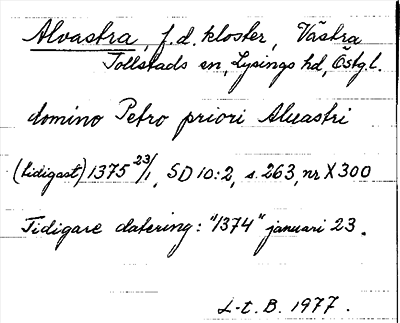 Alvastra, f.d. kloster, Västra
Tollstads sn, Lysings hd, Östg.l.
domino Petro priori Aluastri
(tidigast) 1375 23/1, SD 10:2, s. 263, nr X 300
Tidigare datering: "1374" januari 23.
L-t. B. 1977.